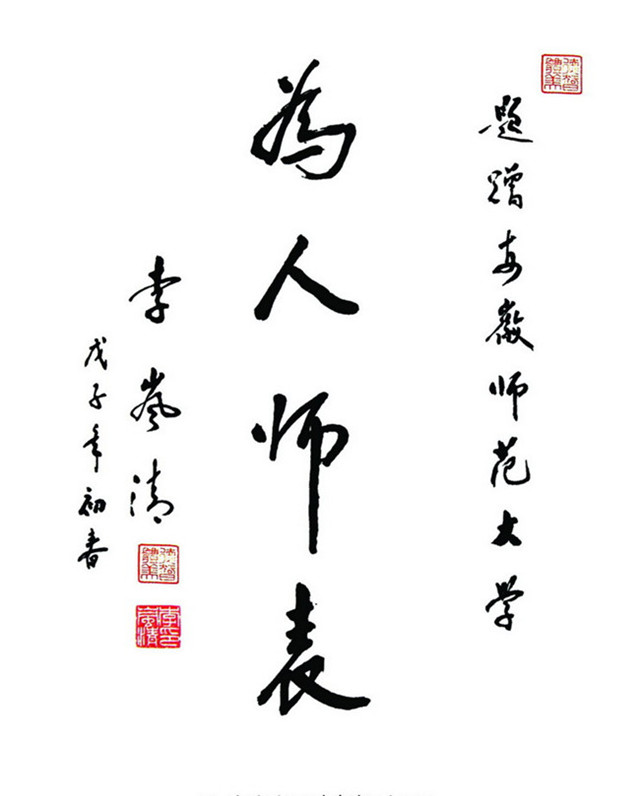 题赠安徽师范大学
為人师表
李岚清
戊子年初春